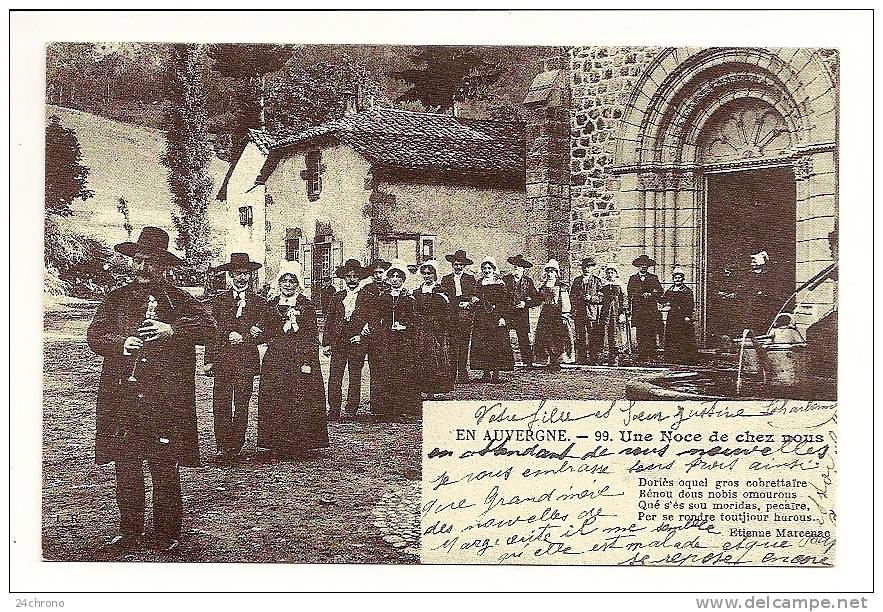 Votre fille et Sœur Justine
EN AUVERGNE. — 99. Une Noce de chez nous
en attendant de vous nouvelles
je vous embrasse tous trois ainsi
que Grand mère
des nouvelles de
Marguerite il me semble
qu'elle est malade
se reposer encore
Doriès oquel gros cobrettaïre
Bénou dous nobis omourous
Qué s'és sou moridas, pecaïre,
Per se rondre toutjiour hurous.
Etienne Marcenac
24chrono
www.delcampe.net